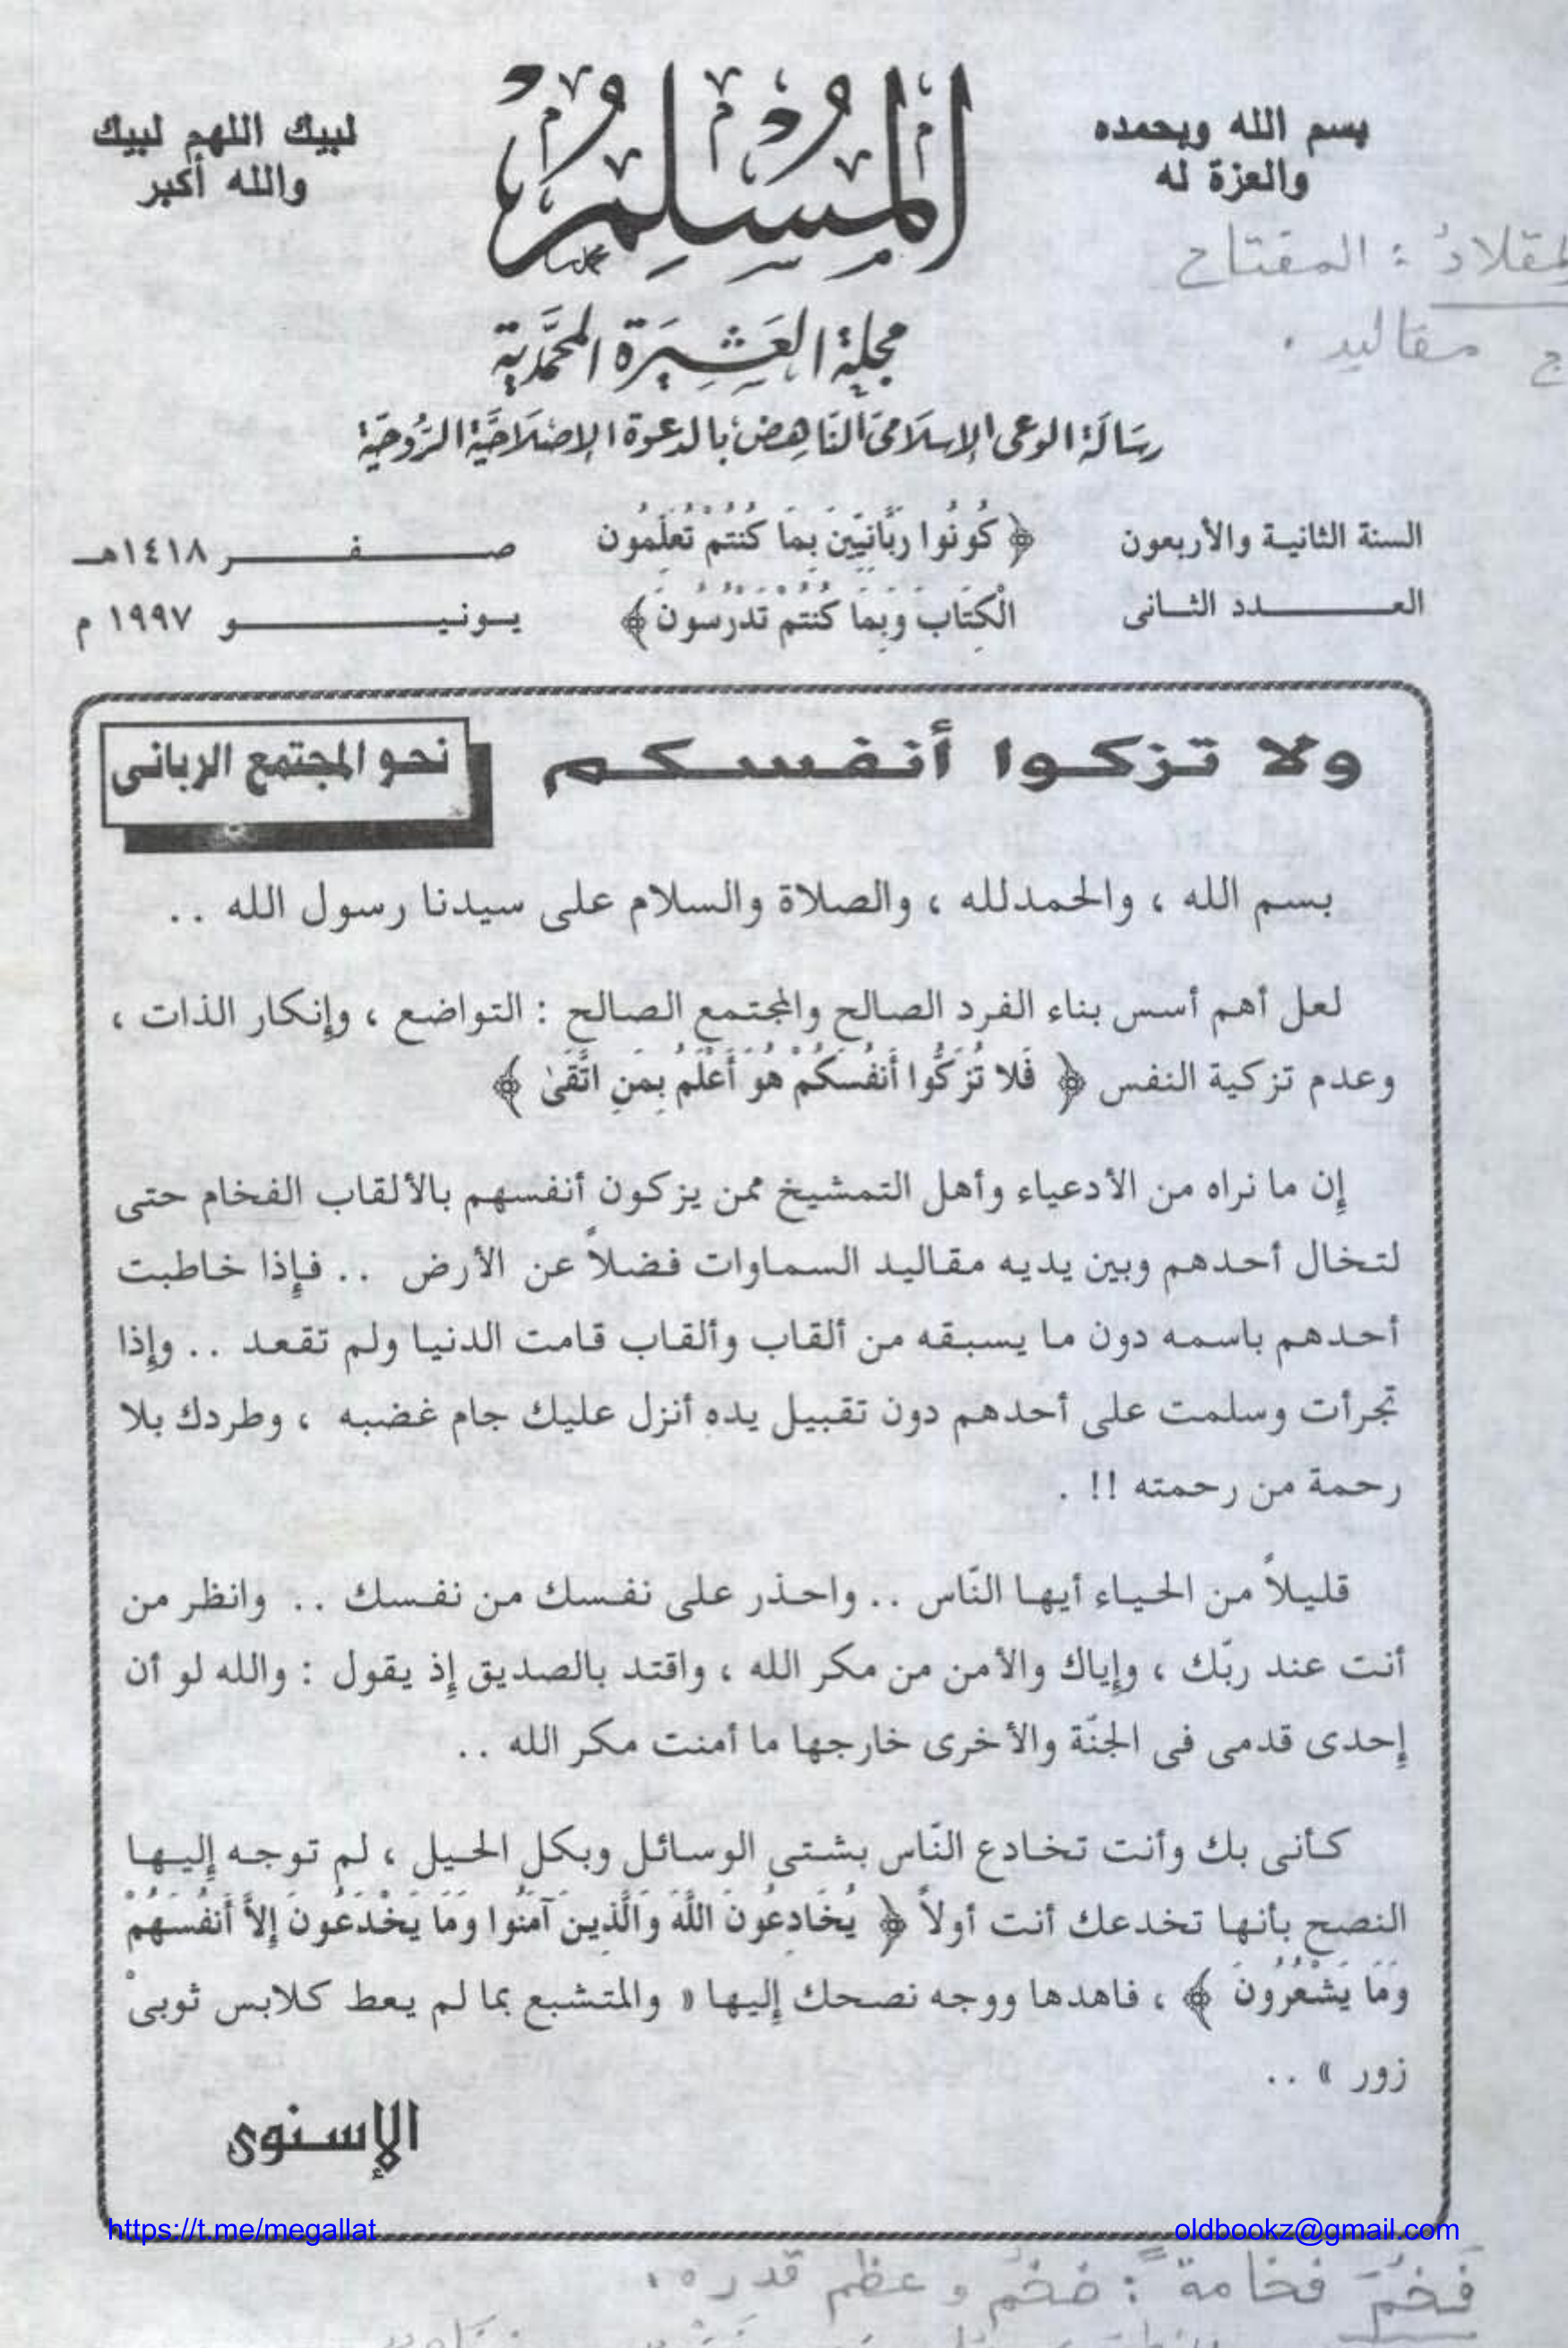 بسم الله وبحمده
والعزة له
المسلم
لبيك اللهم لبيك
والله أكبر
لمقلادُ : المفتاح
ج مقاليد .
مجلة العَشِيَرة المحمَّدية
رسَالَة الوعى الإسلَامى النَاهِض بالدعوة الإصْلَاحيَّة الرُوحيَة
السنة الثانيـة والأربعون
العـــــدد الثـانى
﴿ كُونُوا رَبَّانِيِّينَ بِمَا كُنتُمْ تُعَلِّمُون
الْكِتَابَ وَبِمَا كُنتُمْ تَدْرُسُونَ ﴾
صـــفـــر ١٤١٨هـ
يـونيـــــو ١٩٩٧ م
ولا تـزكـوا أنـفـسـكـم
نحـو المجتمع الربانـى
بسم الله ، والحمدلله ، والصلاة والسلام على سيدنا رسول الله ..
لعل أهم أسس بناء الفرد الصالح والمجتمع الصالح : التواضع ، وإنكار الذات ،
وعدم تزكية النفس ﴿ فَلا تُزَكُّوا أَنفُسَكُمْ هُوَ أَعْلَمُ بِمَنِ اتَّقَىٰ ﴾
إن ما نراه من الأدعياء وأهل التمشيخ ممن يزكون أنفسهم بالألقاب الفخام حتى
لتـخال أحـدهم وبين يديه مقـاليد السماوات فضلاً عن الأرض .. فـإذا خـاطبت
أحـدهم باسمـه دون مـا يسـبقـه من ألقاب وألقاب قـامت الدنيـا ولم تقـعـد .. وإذا
تجرأت وسلمت على أحدهم دون تقبيل يده أنزل عليك جام غضبه ، وطردك بلا
رحمة من رحمته !! .
قليـلاً من الحيـاء أيهـا النّاس .. واحـذر على نفـسك من نفـسك .. وانظر من
أنت عند ربّك ، وإياك والأمن من مكر الله ، واقتد بالصديق إذ يقول : والله لو أن
إحدى قدمى فى الجنّة والأخرى خارجها ما أمنت مكر الله ..
كـأنى بك وأنت تخـادع النّاس بشـتى الوسائـل وبكل الحـيل ، لم توجـه إليـهـا
النصح بأنهـا تخدعك أنت أولاً ﴿ يُخَادِعُونَ اللَّهَ وَالَّذِينَ آمَنُوا وَمَا يَخْدَعُونَ إِلاَّ أَنفُسَهُمْ
وَمَا يَشْعُرُونَ ﴾ ، فاهدها ووجه نصحك إليها « والمتشبع بما لم يعط كلابس ثوبىْ
زور » ..
الإسـنوى
https://t.me/megallat
oldbookz@gmail.com
فَخُمَ فخامةً : ضَخُمَ وعظم قدره .